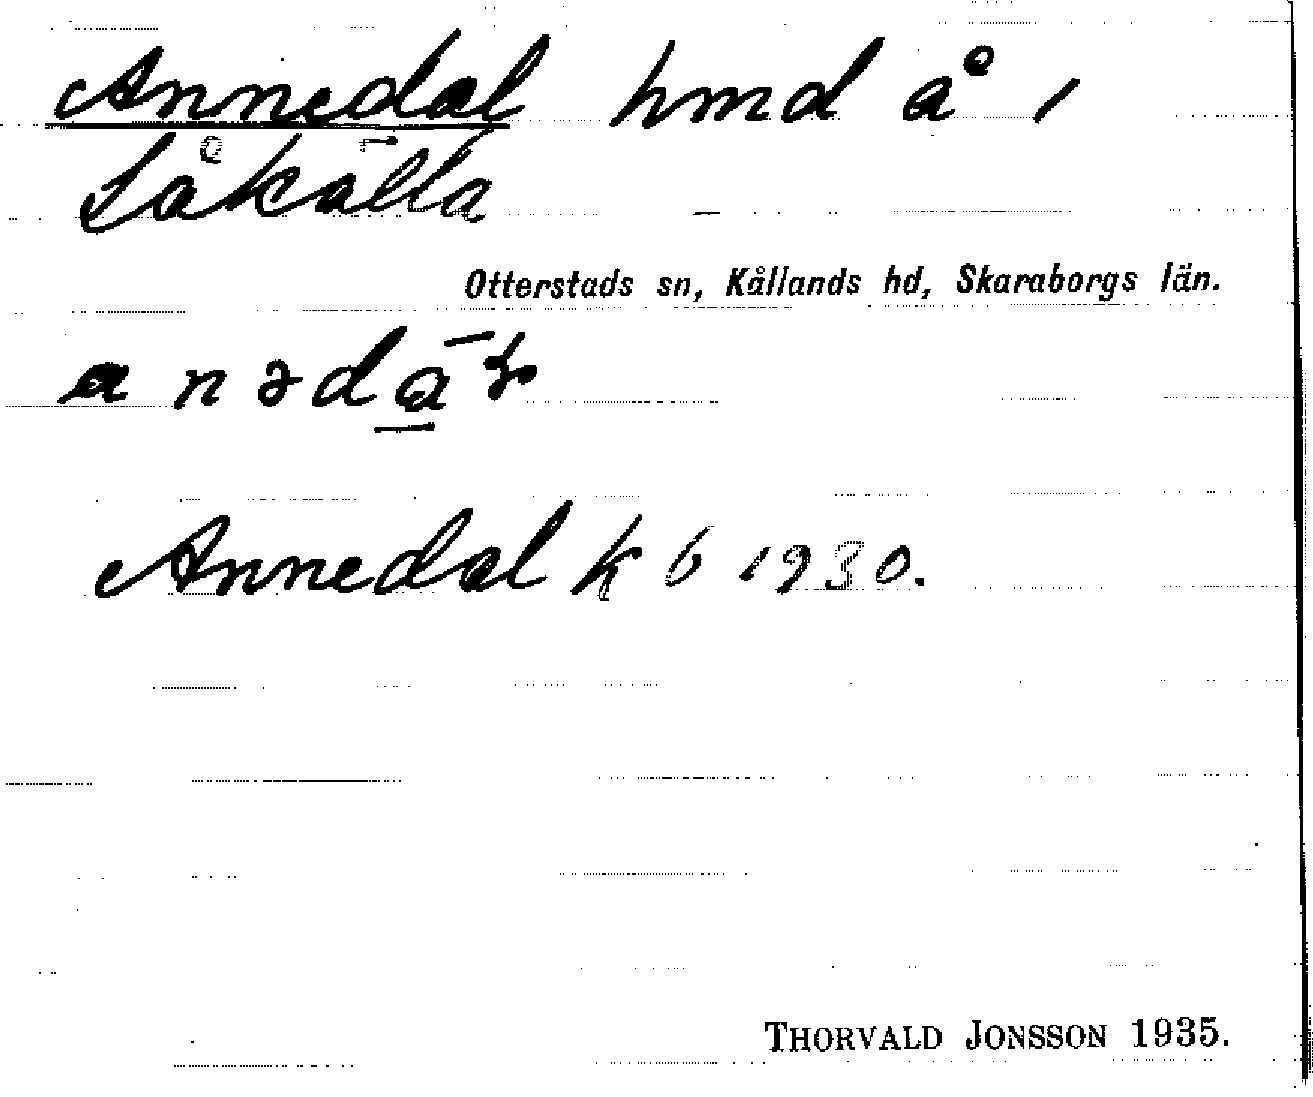 Annedal hmd å 1
Såkalla
Otterstads sn, Kållands hd, Skaraborgs län.
Annedal kb 1930.
THORVALD JONSSON 1935.